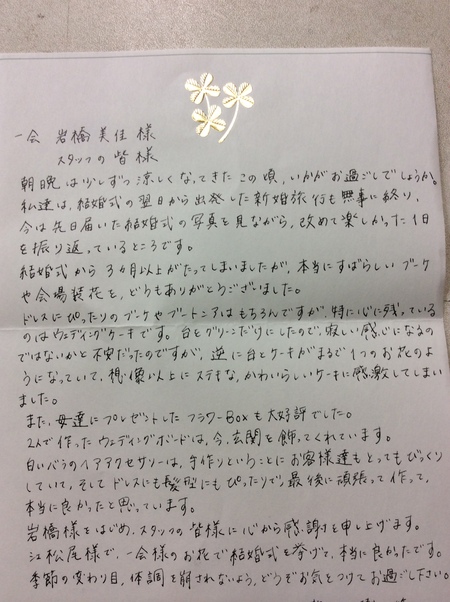 一会 岩橋美佳様
スタッフの皆様
朝晩は少しずつ涼しくなってきたこの頃、いかがお過ごしでしょうか。
私達は、結婚式の翌日から出発した新婚旅行も無事に終り、
今は先日届いた結婚式の写真を見ながら、改めて楽しかった1日
を振り返っているところです。
結婚式から3ヶ月以上がたってしまいましたが、本当にすばらしいブーケ
や会場装花を、どうもありがとうございました。
ドレスにぴったりのブーケやブートニアはもちろんですが、特に心に残っている
のはウェディングケーキです。台をグリーンだけにしたので、寂しい感じになるの
ではないかと不安だったのですが、逆に台とケーキがまるで1つのお花のよ
うになっていて、想像以上にステキな、かわいらしいケーキに感激してしまい
ました。
また、母達にプレゼントしたフラワーBoxも大好評でした。
2人で作ったウェディングボードは、今、玄関を飾ってくれています。
白いバラのヘアアクセサリーは、手作りということにお客様達もとってもびっくり
していて、そしてドレスにも髪型にもぴったりで、最後に頑張って作って、
本当に良かったと思っています。
岩橋様をはじめ、スタッフの皆様に心から感謝を申し上げます。
江松尾様で、一会様のお花で結婚式を挙げて、本当に良かったです。
季節の変わり目、体調を崩されないよう、どうぞお気をつけてお過ごし下さい。